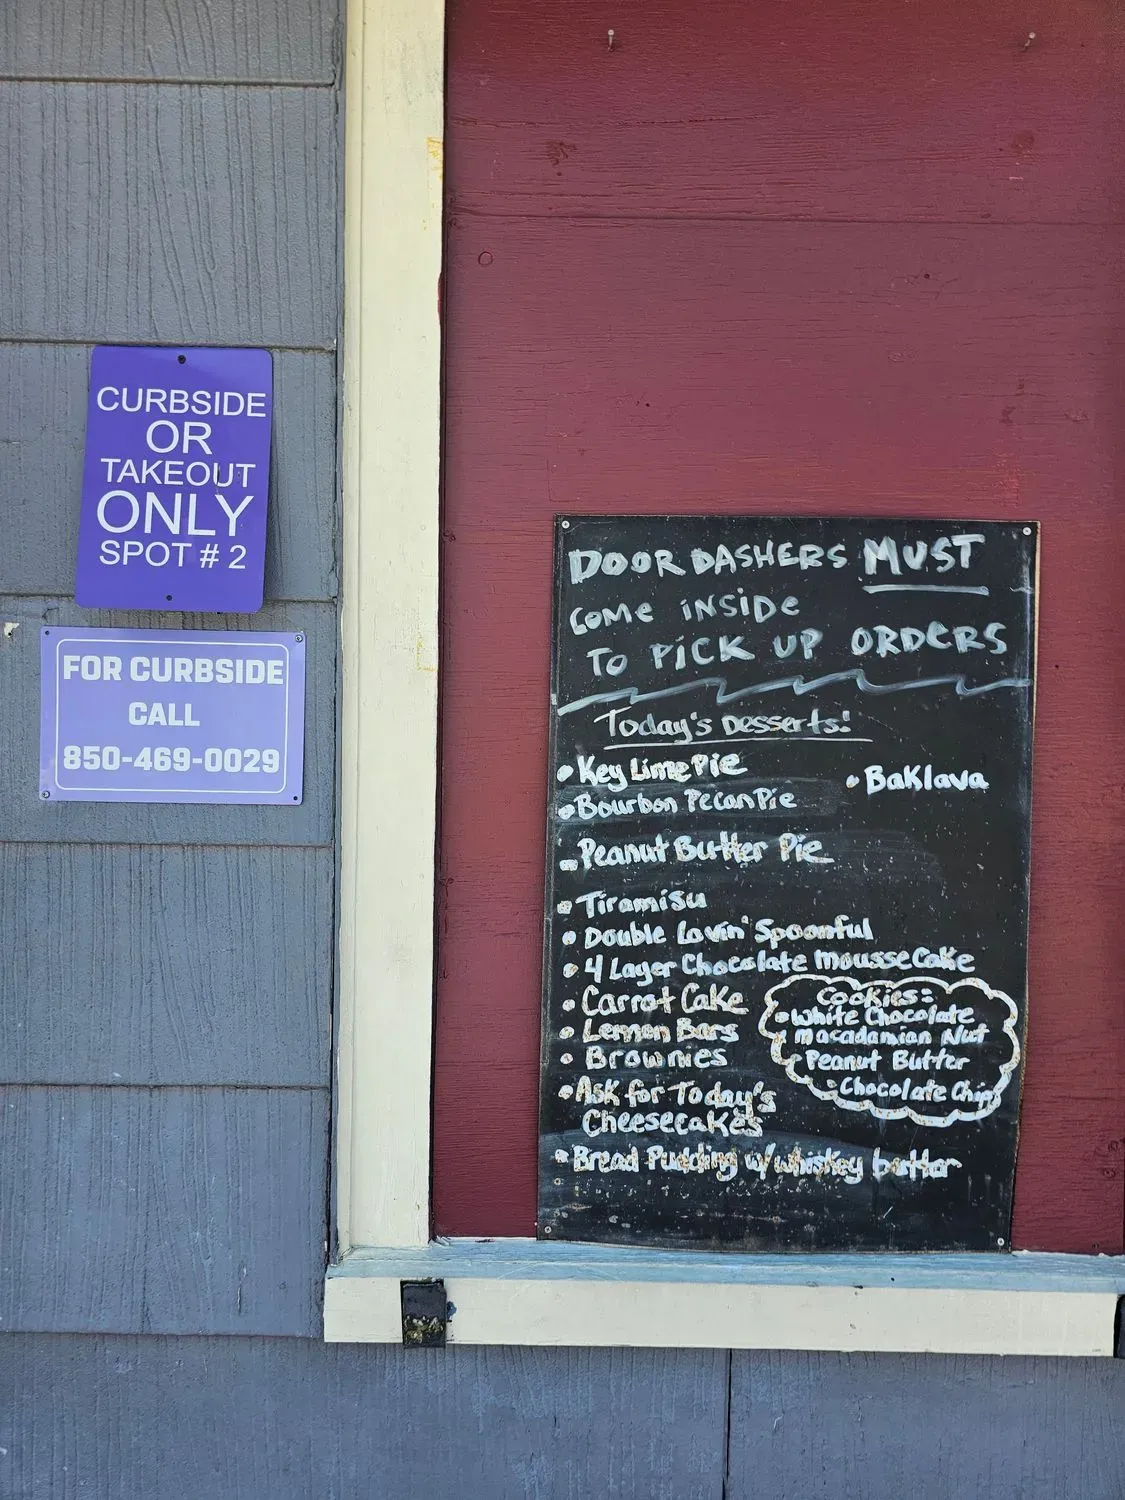 CURBSIDE
OR
TAKEOUT
ONLY
SPOT # 2
FOR CURBSIDE
CALL
850-469-0029
DOOR DASHERS MUST
COME INSIDE
TO PICK UP ORDERS
Today's Desserts!
• Key Lime Pie
• Baklava
• Bourbon Pecan Pie
• Peanut Butter Pie
• Tiramisu
• Double Lovin' Spoonful
• 4 Layer Chocolate mousse Cake
• Carrot Cake
• Lemon Bars
• Brownies
• Ask for Today's
Cheesecakes
• Bread Pudding w/ whiskey butter
Cookies:
• White Chocolate
Macadamian Nut
• Peanut Butter
• Chocolate Chip